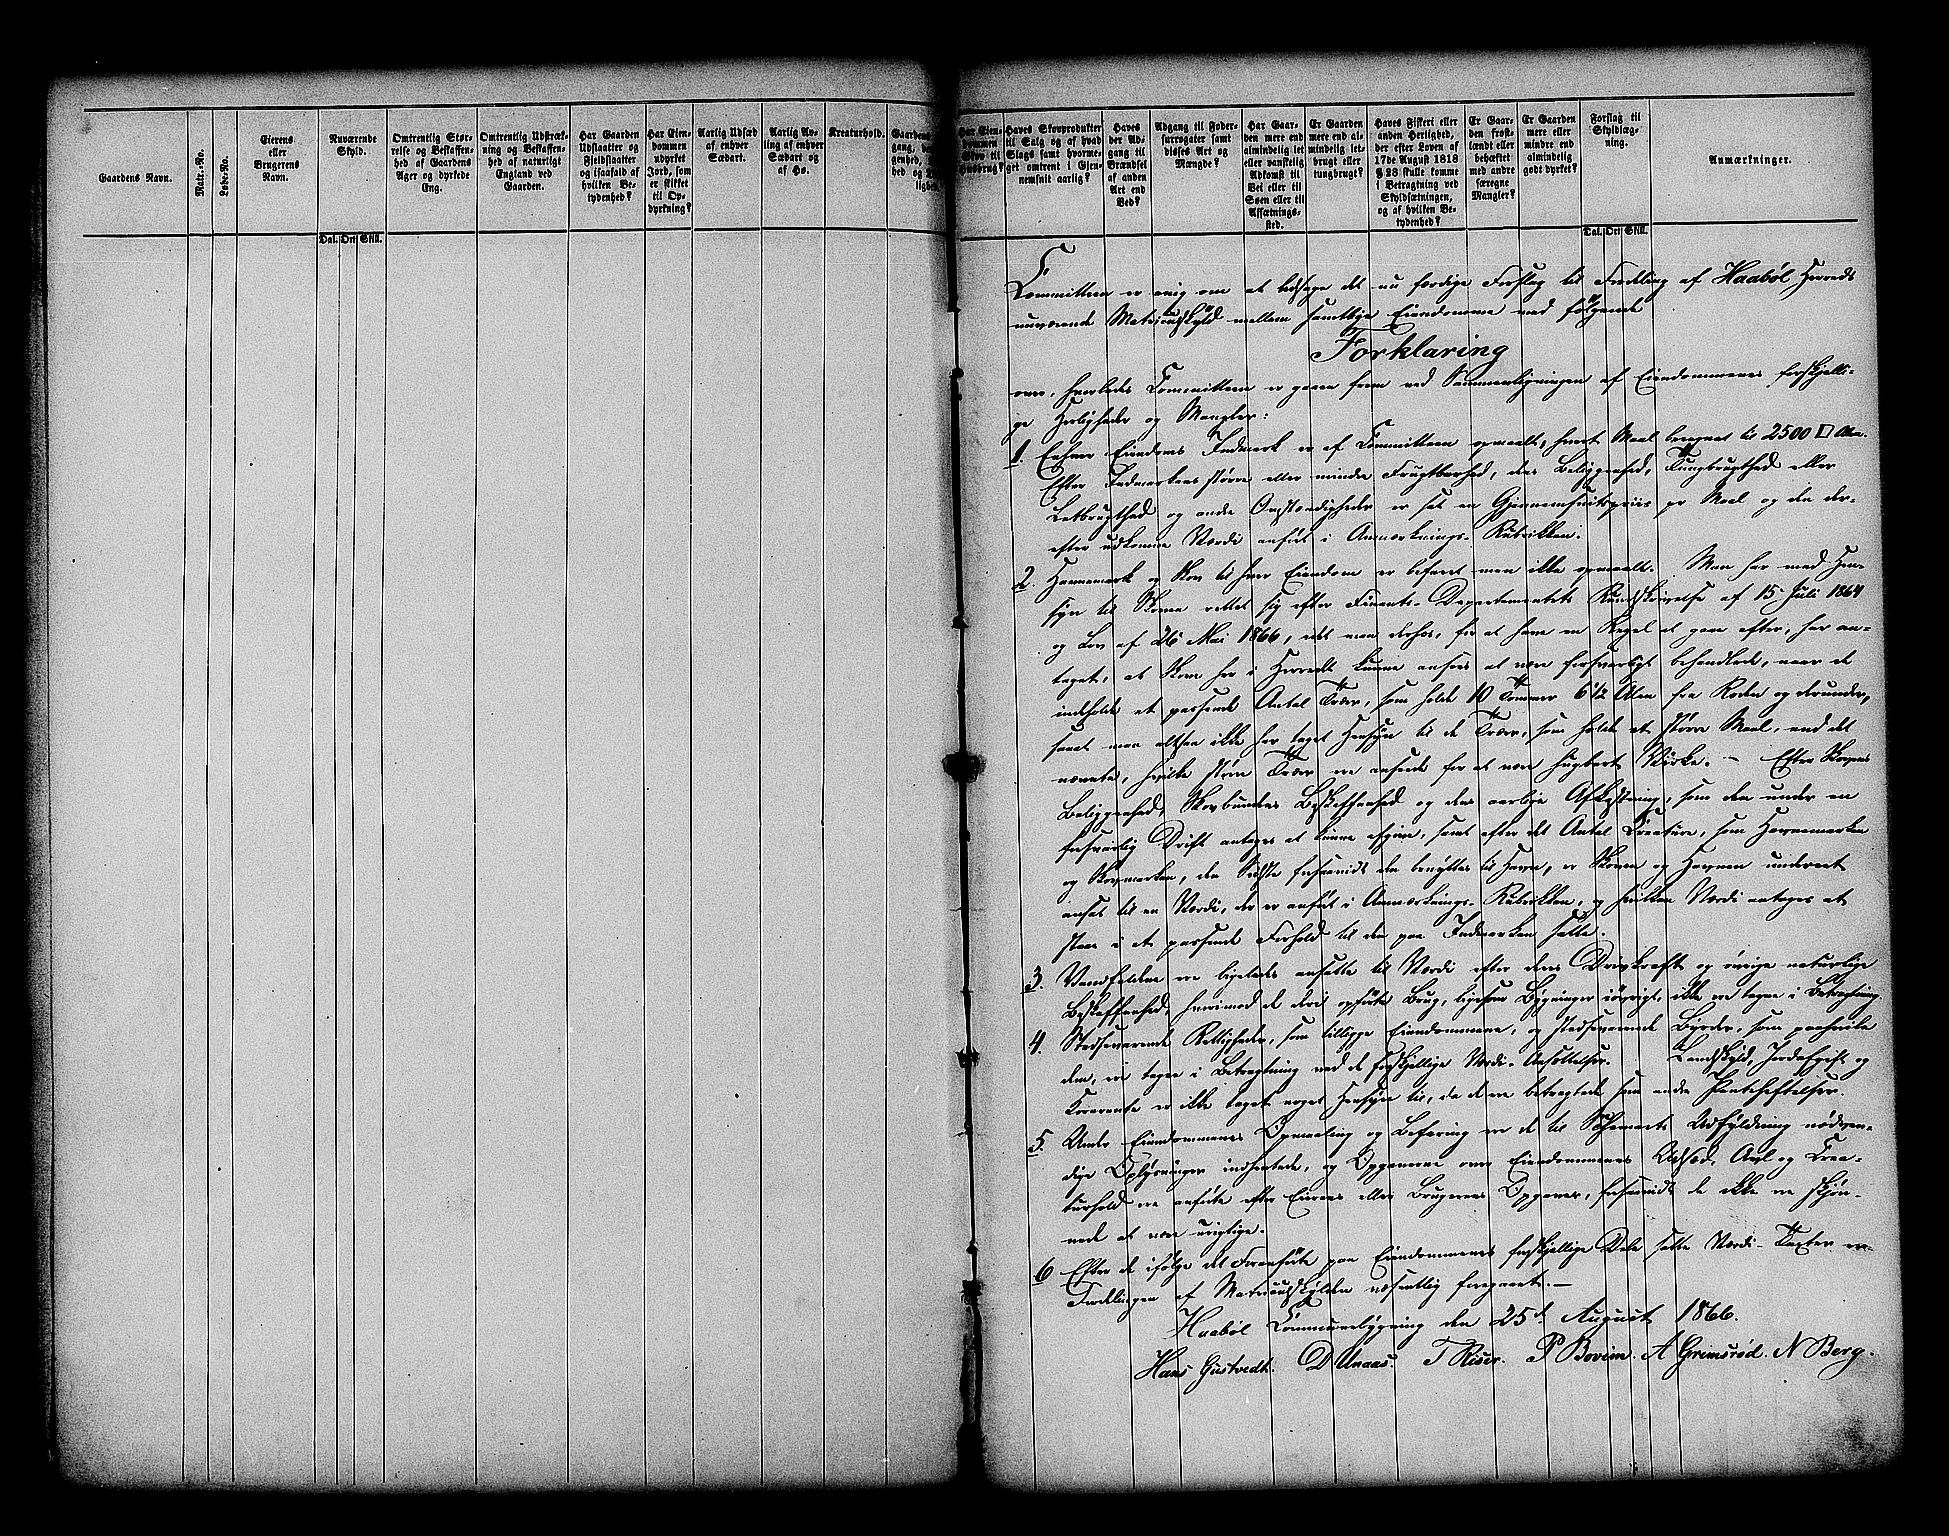 Gaardens Navn.
Matr.-No.
Løbe-No.
Eierens
eller
Brugerens
Navn.
Nuværende
Skyld.
Dal. Ort Skill.
Omtrentlig Stør-
relse og Beskaffen-
hed af Gaardens
Ager og dyrkede
Eng.
Omtrentlig Udstræk-
ning og Beskaffen-
hed af naturligt
England ved
Gaarden.
Har Gaarden
Udslaatter og
Fjeldslaatter
og isaafald af
hvilken Be-
tydenhed?
Har Eien-
dommen
udyrket
Jord, som
er skikket
til Op-
dyrkning?
Aarlig Udsæd
af enhver
Sædart.
Aarlig Av-
ling af enhver
Sædart og
af Hø.
Kreaturhold.
Gaardens
gang,
genhed,
hed og
lighed
Har Eien-
dommen
Skov til
Husbrug?
Haves Skovprodukter
til Salg og af hvad
Slags samt hvorme-
get omtrent i Gjen-
nemsnit aarlig?
Haves
der Ad-
gang til
Brændsel
af anden
Art end
Ved?
Adgang til Foder-
surrogater samt
disses Art og
Mængde?
Har Gaar-
den mere end
almindelig let
eller vanskelig
Adkomst til
Vei eller til
Søen eller til
Afsætnings-
sted.
Er Gaarden
mere end al-
mindelig let-
brugt eller
tungbrugt?
Haves Fiskeri eller
anden Herlighed,
der efter Loven af
17de August 1818
§ 28 skulle komme
i Betragtning ved
Skyldsætningen,
og af hvilken Be-
tydenhed?
Er Gaar-
den frost-
lændt eller
behæftet
med andre
særegne
Mangler?
Er Gaarden
mere eller
mindre end
almindelig
godt dyrket?
Forslag til
Skyldlæg-
ning.
Dal. Ort Skill.
Anmærkninger.
Committeen er enig om at ledsage det nu færdige Forslag til Fordeling af Haabøl Herreds
nuværende Matriculskyld mellem samtlige Eiendomme med følgende
Forklaring
over, hvorledes Committeen er gaaet frem ved Sammenligningen af Eiendommenes forskjelli-
ge Herligheder og Mangler:
1. Enhver Eiendoms Indmark er af Committeen opmaalt, hvert Maal beregnet til 2500 □ Alen.
Efter Indmarkens større eller mindre Frugtbarhed, dens Beliggenhed, Tungbrugthed eller
Letbrugthed og andre Omstændigheder er sat en Gjennemsnitspriis pr Maal og den der-
efter udkomne Værdi anført i Anmærknings-Rubrikken.
2. Havnemark og Skov til hver Eiendom er befaret men ikke opmaalt. Man har med Hen-
syn til Skovene rettet sig efter Finants-Departementets Rundskrivelse af 15 Juli 1864
og Lov af 26 Mai 1866, idet man derhos, for at have en Regel at gaae efter, har an-
taget, at Skov her i Herredet kunne ansees at være forsvarligt behandlede, naar de
indeholde et passende Antal Træer, som holde 10 Tommer 6½ Alen fra Roden og derunder,
samt man altsaa ikke har taget Hensyn til de Træer, som holde et større Maal, end det
nævnte, hvilke større Træer ere ansete for at være hugbart Virke. – Efter Skovens
Beliggenhed, Skovbundens Beskaffenhed og den aarlige Afkastning, som den under en
forsvarlig Drift antages at kunne afgive, samt efter det Antal Creature, som Havnemarken
og Skovmarken, den Sidste forsaavidt den benyttes til Havn, er Skoven og Havnen underet
ansat til en Værdi, der er anført i Anmærknings-Rubrikken, og hvilken Værdi antages at
staa i et passende Forhold til den paa Indmarken satte.
3. Vandfaldene ere ligeledes ansatte til Værdi efter deres Drivkraft og øvrige naturlige
Beskaffenhed, hvorimod de deri opførte Brug, ligesom Bygninger iøvrigt, ikke ere tagne i Betragtning.
4. Stedsevarende Rettigheder, som tillægge Eiendommene, og stedsevarende Byrder, som paahvile
dem, ere tagne i Betragtning ved de forskjellige Værdi-Ansættelser. Landskyld, Jordafgift og
Kornrente er ikke taget noget Hensyn til, da de ere betragtede som andre Pantehæftelser.
5. Under Eiendommenes Opmaaling og Befaring ere de til Schemaets Udfyldning nødven-
dige Oplysninger indhentede, og Opgaverne over Eiendommenes Udsæd, Avl og Crea-
turhold ere anførte efter Eierens eller Brugerens Opgaver, forsaavidt de ikke ere skjøn-
nede at være urigtige.
6 Efter de ifølge det Foranførte paa Eiendommenes forskjellige Dele satte Værdi-Taxter er
Fordelingen af Matriculskylden væsentlig foregaaet. –
Haabøl Communebygning den 25de August 1866.
Hans Gustvedt. D Unaas. T Riser. P Bovim. A Grimsrød. N Berg.